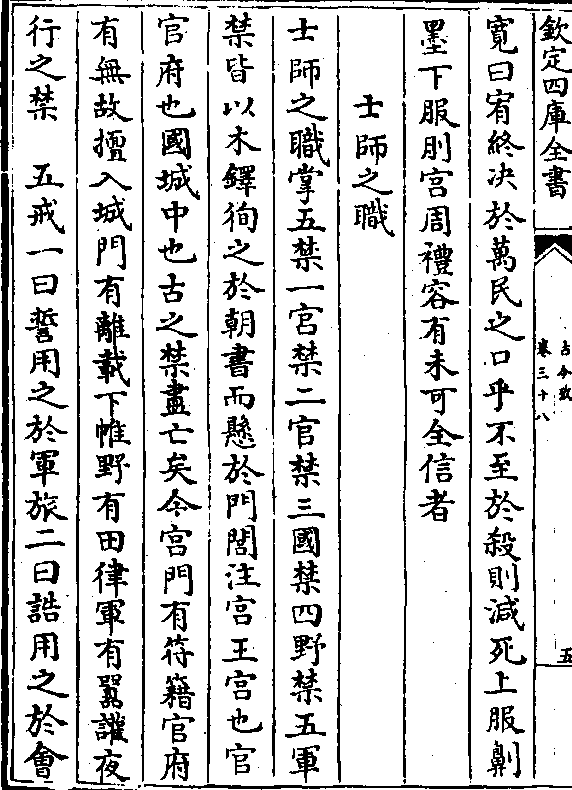 欽定四庫全書
古今攷
卷三十八
五
寛曰宥終决於萬民之口乎不至於殺則減死上服劓
墨下服刖宫周禮容有未可全信者
士師之職
士師之職掌五禁一宫禁二官禁三國禁四野禁五軍
禁皆以木鐸徇之於朝書而懸於門閭注宫王宫也官
官府也國城中也古之禁盡亡矣今宫門有符籍官府
有無故擅入城門有離載下帷野有田律軍有嚻讙夜
行之禁 五戒一曰誓用之於軍旅二曰誥用之於會